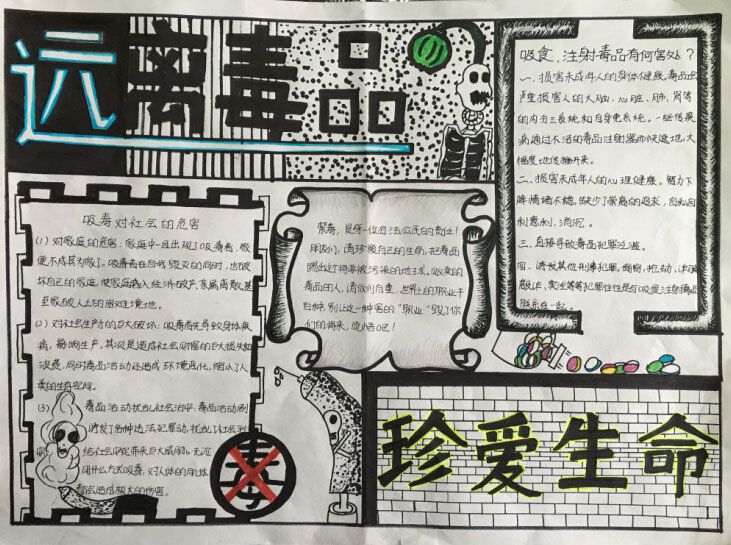 远离毒品
吸毒对社会的危害
(1) 对家庭的危害：家庭中一旦出现了吸毒者，家
便不成其为家了。吸毒者在自我毁灭的同时，也破
坏自己的家庭，使家庭陷入经济破产、亲属离散、甚
至家破人亡的困难境地。
(2) 对社会生产力的巨大破坏：吸毒首先导致身体疾
病，影响生产，其次是造成社会财富的巨大损失和
浪费，同时毒品活动还造成环境恶化，缩小了人
类的生存空间。
(3) 毒品活动扰乱社会治安：毒品活动加剧
诱发了各种违法犯罪活动，扰乱了社会治
给社会安定带来巨大威胁。无论
用什么方式吸毒，对人体的身体
都会造成极大的伤害。
毒
禁毒，是每一位守法公民的责任！
朋友们，请珍爱自己的生命，把毒品
吸毒
毒品的人，请你们自重，世界上的职业千
百种，别让这一种害的“职业”毁了你
们的将来，
吸食，注射毒品有何害处？
一、损害未成年人的身体健康。毒品会
严重损害人的大脑、心脏、肺、肾等
的内分三系统和自身免系统。一些传染
病通过不洁的毒品注射器而快速地，大
幅度地传播开来。
二、损害未成年人的心理健康。智力下
降，情绪不稳，缺少了崇高的追求，
三、直接导致毒品犯罪泛滥。
四、诱发其他刑事犯罪。
联系在一起。
珍爱生命